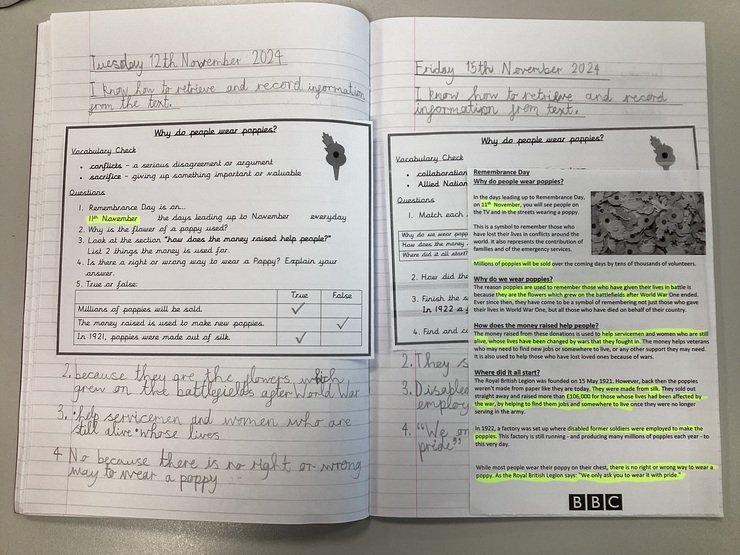 Tuesday 12th November 2024
I know how to retrieve and record information
from the text.
Why do people wear poppies?
Vocabulary Check
• conflicts - a serious disagreement or argument
• sacrifice - giving up something important or valuable
Questions
1. Remembrance Day is on...
11th November the days leading up to November everyday
2. Why is the flower of a poppy used?
3. Look at the section "how does the money raised help people?"
List 2 things the money is used for.
4. Is there a right or wrong way to wear a Poppy? Explain your
answer.
5. True or false:
True False
Millions of poppies will be sold. ✓
The money raised is used to make new poppies. ✓
In 1921, poppies were made out of silk. ✓
2. because they are the flowers which
grew on the battlefields after World War
3. • help servicemen and women who are
still alive • whose lives
4 No because there is no right or wrong
way to wear a poppy
Friday 15th November 2024
I know how to retrieve and record
information from text.
Why do people wear poppies?
Vocabulary Check
• collaboration
• Allied Nation
Questions
1. Match each
Why do we wear popp
How does the money
Where did it all start?
2. How did the
3. Finish the s
In 1922 a f
4. Find and c
2. They s
3. Disabled
employ
4. "We on
pride"
Remembrance Day
Why do people wear poppies?
In the days leading up to Remembrance Day,
on 11th November, you will see people on
the TV and in the streets wearing a poppy.
This is a symbol to remember those who
have lost their lives in conflicts around the
world. It also represents the contribution of
families and of the emergency services.
Millions of poppies will be sold over the coming days by tens of thousands of volunteers.
Why do we wear poppies?
The reason poppies are used to remember those who have given their lives in battle is
because they are the flowers which grew on the battlefields after World War One ended.
Ever since then, they have come to be a symbol of remembering not just those who gave
their lives in World War One, but all those who have died on behalf of their country.
How does the money raised help people?
The money raised from these donations is used to help servicemen and women who are still
alive, whose lives have been changed by wars that they fought in. The money helps veterans
who may need to find new jobs or somewhere to live, or any other support they may need.
It is also used to help those who have lost loved ones because of wars.
Where did it all start?
The Royal British Legion was founded on 15 May 1921. However, back then the poppies
weren't made from paper like they are today. They were made from silk. They sold out
straight away and raised more than £106,000 for those whose lives had been affected by
the war, by helping to find them jobs and somewhere to live once they were no longer
serving in the army.
In 1922, a factory was set up where disabled former soldiers were employed to make the
poppies. This factory is still running - and producing many millions of poppies each year - to
this very day.
While most people wear their poppy on their chest, there is no right or wrong way to wear a
poppy. As the Royal British Legion says: "We only ask you to wear it with pride."
BBC